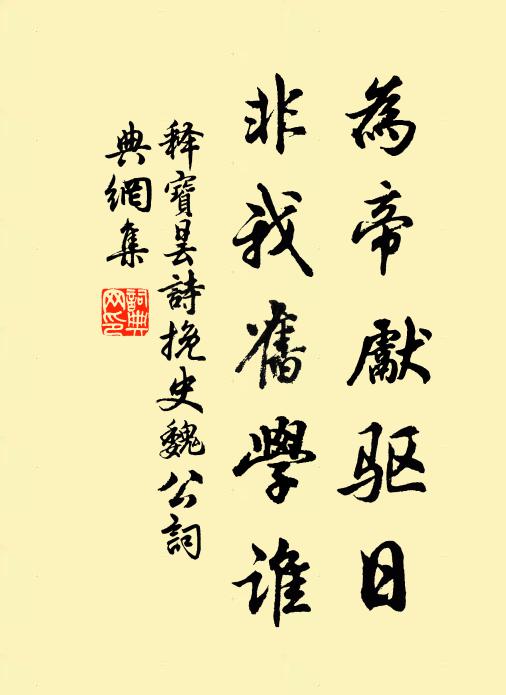 為帝獻驱日
非我舊學誰
释寶昙詩挽史魏公詞
典網集
詞典
网印